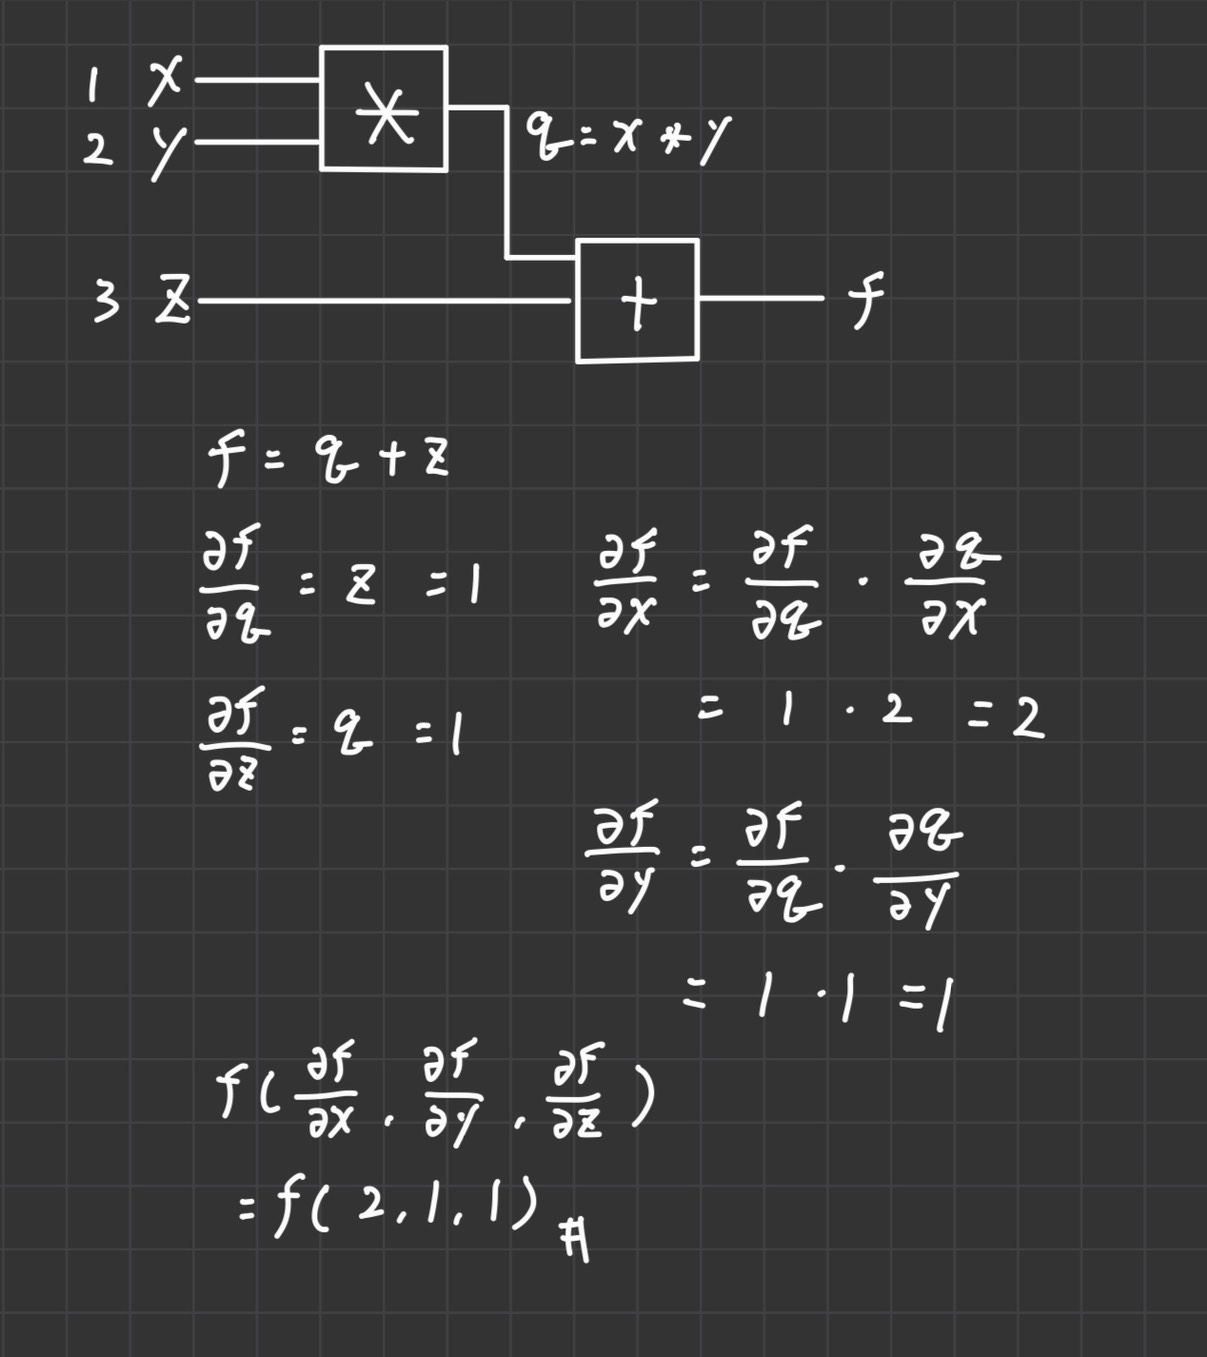 1 X
*
q = x * y
2 Y
3 Z
+
f
f = q + z
∂f/∂q = z = 1
∂f/∂z = q = 1
∂f/∂x = ∂f/∂q · ∂q/∂x
= 1 · 2 = 2
∂f/∂y = ∂f/∂q · ∂q/∂y
= 1 · 1 = 1
f(∂f/∂x, ∂f/∂y, ∂f/∂z)
= f(2, 1, 1) #